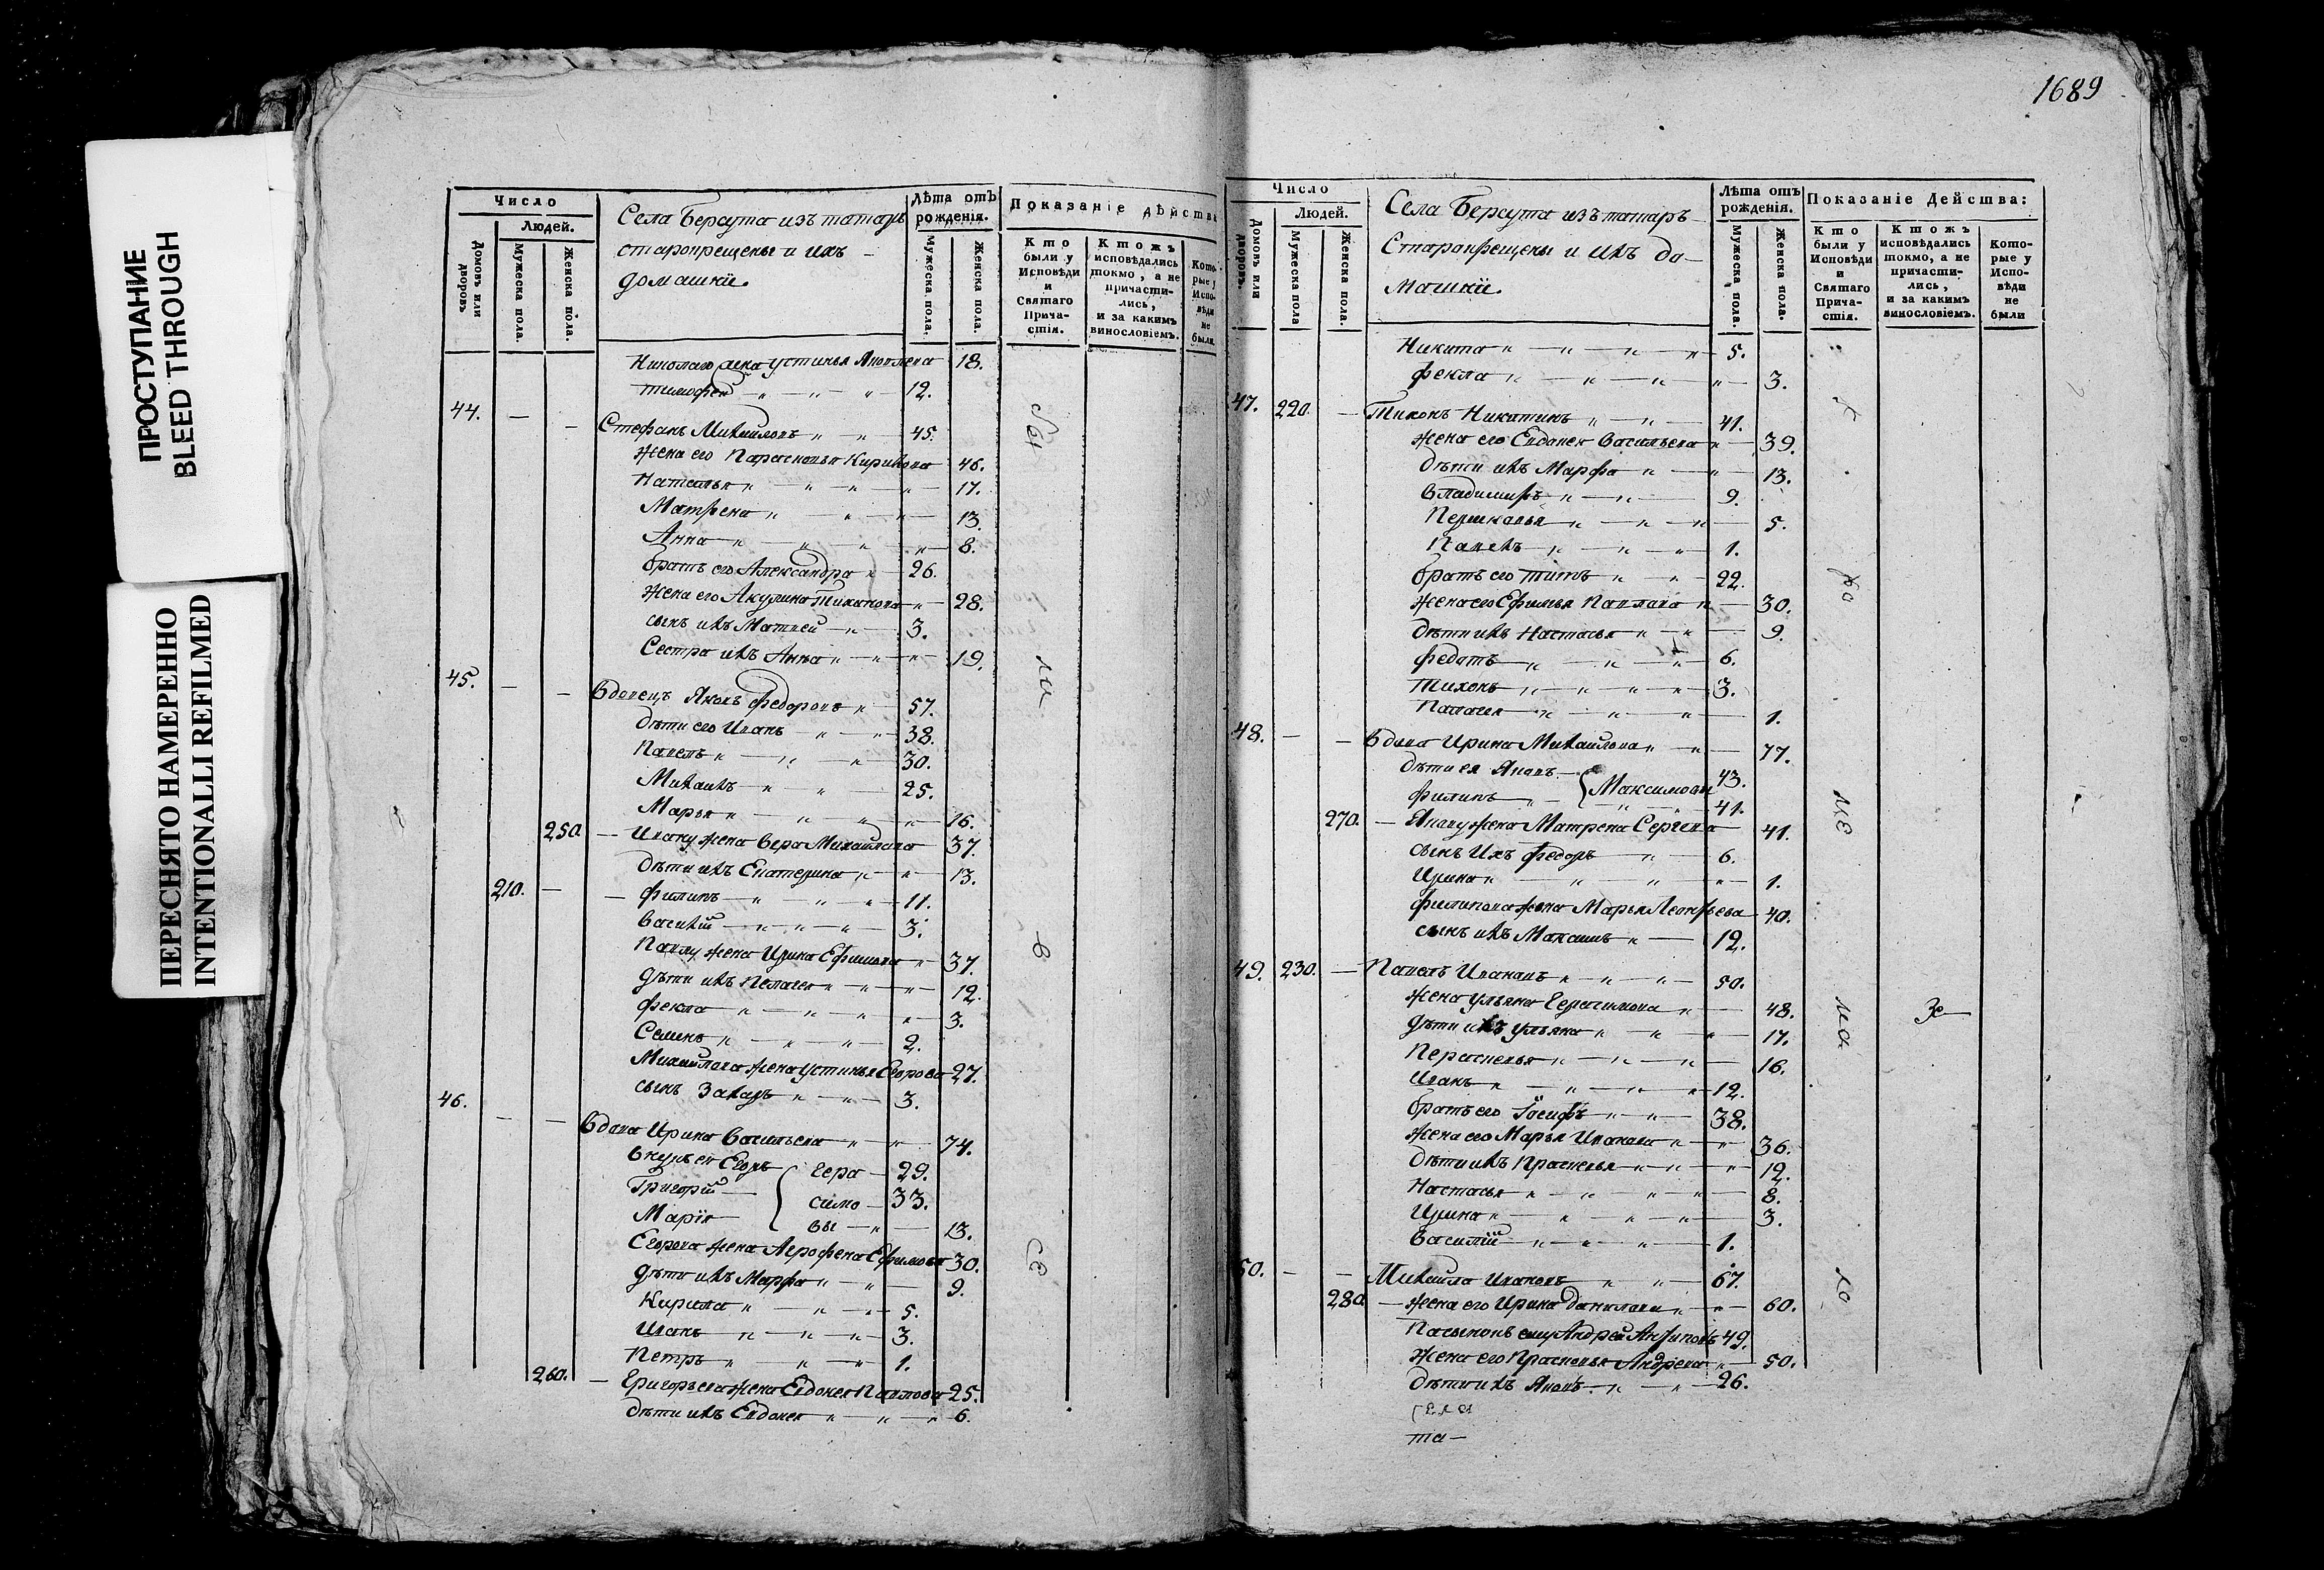 1689
ПРОСТУПАНИЕ
BLEED THROUGH
ПЕРЕСНЯТО НАМЕРЕННО
INTENTIONALLI REFILMED
Число
Людей.
Домовъ или дворовъ
Мужеска пола.
Женска пола.
Села Берсута изъ татаръ
старокрещены и ихъ
домашнїи.
Лѣта отъ рожденія.
Мужеска пола.
Женска пола.
Показаніе дѣйства
Кто были у Исповѣди и Святаго Причастія.
Ктожъ исповѣдались токмо, а не причастились, и за какимъ винословіемъ.
Которые у Исповѣди не были.
Николаю жена Устинья Яковлева 18.
Тимофей 12.
44. Стефанъ Михайловъ 45.
Жена его Парасковья Кирилова 46.
Наталья 17.
Матрена 13.
Анна 8.
братъ его Александра 26.
жена его Акулина Тиханова 28.
сынъ ихъ Матвей 3.
Сестра ихъ Анна 19.
45. Вдовецъ Яковъ Федоровъ 57.
дѣти его Иванъ 38.
Павелъ 30.
Михаилъ 25.
Марья 16.
250. Ивану жена Вера Михайлова 37.
дѣти ихъ Екатерина 13.
210. Филипъ 11.
Василій 3.
Павлу жена Ирина Ефимова 37.
дѣти ихъ Пелагея 12.
Фекла 3.
Семенъ 2.
Михайлова жена Устинья Егорова 27.
сынъ Захаръ 3.
46. Вдова Ирина Васильева 74.
Внукъ ея Егоръ Гера 29.
Григорій симо 33.
Марія вы 13.
Егорова жена Агрофена Ефимова 30.
дѣти ихъ Марфа 9.
Кирила 5.
Иванъ 3.
Петръ 1.
260. Григорьева жена Евдокея Павлова 25.
дѣти ихъ Евдокея 6.
Число
Людей.
Домовъ или дворовъ.
Мужеска пола
Женска пола.
Села Берсута изъ татаръ
Старокрещены и ихъ до
машнїи.
Лѣта отъ рожденія.
Мужеска пола.
Женска пола.
Показаніе Дейсшва:
Кто были у Исповѣди и Святаго Причастія.
Ктожъ исповѣдались токмо, а не причастились, и за какимъ винословіемъ.
Которые у Исповѣди не были
Никита 5.
Фекла 3.
47. 220. Тихонъ Никитинъ 41.
жена его Евдокея Васильева 39.
дѣти ихъ Марфа 13.
Владимиръ 9.
5.
Павелъ 1.
братъ его Титъ 22.
жена его Ефимья Павлова 30.
дѣти ихъ Настасья 9.
Федотъ 6.
Тихонъ 3.
1.
48. Вдова Ирина Михайлова 77.
дѣти ея Яковъ Максимовы 43.
Филипъ 41.
270. Якову жена Матрена Сергеева 41.
сынъ Ихъ Федоръ 6.
Ирина 1.
Филипова жена Марья Леонтьева 40.
сынъ ихъ Максимъ 12.
49. 230. Павелъ Ивановъ 50.
жена Ульяна Герасимова 48.
дѣти ихъ Ульяна 17.
Парасковья 16.
Иванъ 12.
братъ его Іосифъ 38.
жена его Марья Иванова 36.
дѣти ихъ Прасковья 12.
Настасья 8.
Ирина 3.
Василій 1.
50. Михайла Ивановъ 67.
280. жена его Ирина Данилова 60.
Пасынокъ ему Андрей Антиповъ 49.
жена его Прасковья Андреева 50.
дѣти ихъ Яковъ 26.
та